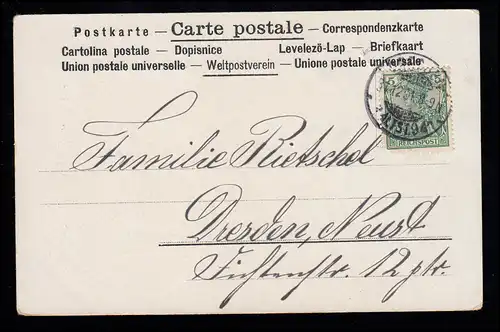 Postkarte — Carte postale — Correspondenzkarte
Cartolina postale — Dopisnice Levelezö-Lap — Briefkaart
Union postale universelle — Weltpostverein — Unione postale universale
REICHSPOST
Familie Rietschel
Dresden, Neust
Fichtenstr. 12 ptr.